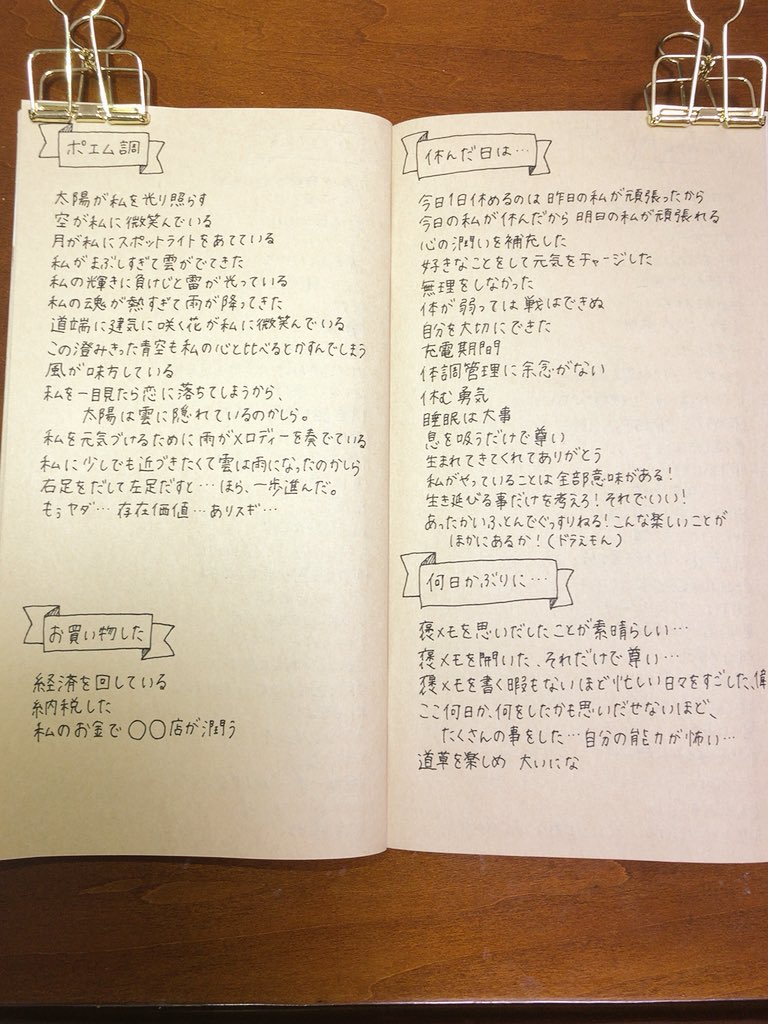 ポエム調
太陽が私を光り照らす
空が私に微笑んでいる
月が私にスポットライトをあてている
私がまぶしすぎて雲がでてきた
私の輝きに負けじと雷が光っている
私の魂が熱すぎて雨が降ってきた
道端に健気に咲く花が私に微笑んでいる
この澄みきった青空も私の心と比べるとかすんでしまう
風が味方している
私を一目見たら恋に落ちてしまうから、
太陽は雲に隠れているのかしら。
私を元気づけるために雨がメロディーを奏でている
私に少しでも近づきたくて雲は雨になったのかしら
右足をだして左足だすと…ほら、一歩進んだ。
もぅヤダ…存在価値…ありスギ…
お買い物した
経済を回している
納税した
私のお金で〇〇店が潤う
休んだ日は…
今日1日休めるのは昨日の私が頑張ったから
今日の私が休んだから明日の私が頑張れる
心の潤いを補充した
好きなことをして元気をチャージした
無理をしなかった
体が弱っては戦はできぬ
自分を大切にできた
充電期間
体調管理に余念がない
休む勇気
睡眠は大事
息を吸うだけで尊い
生まれてきてくれてありがとう
私がやっていることは全部意味がある!
生き延びる事だけを考えろ!それでいい!
あったかいふとんでぐっすりねる!こんな楽しいことが
ほかにあるか!(ドラえもん)
何日かぶりに…
褒メモを思いだしたことが素晴らしい…
褒メモを開いた、それだけで尊い…
褒メモを書く暇もないほど忙しい日々をすごした、偉
ここ何日か、何をしたかも思いだせないほど、
たくさんの事をした…自分の能力が怖い…
道草を楽しめ 大いにな